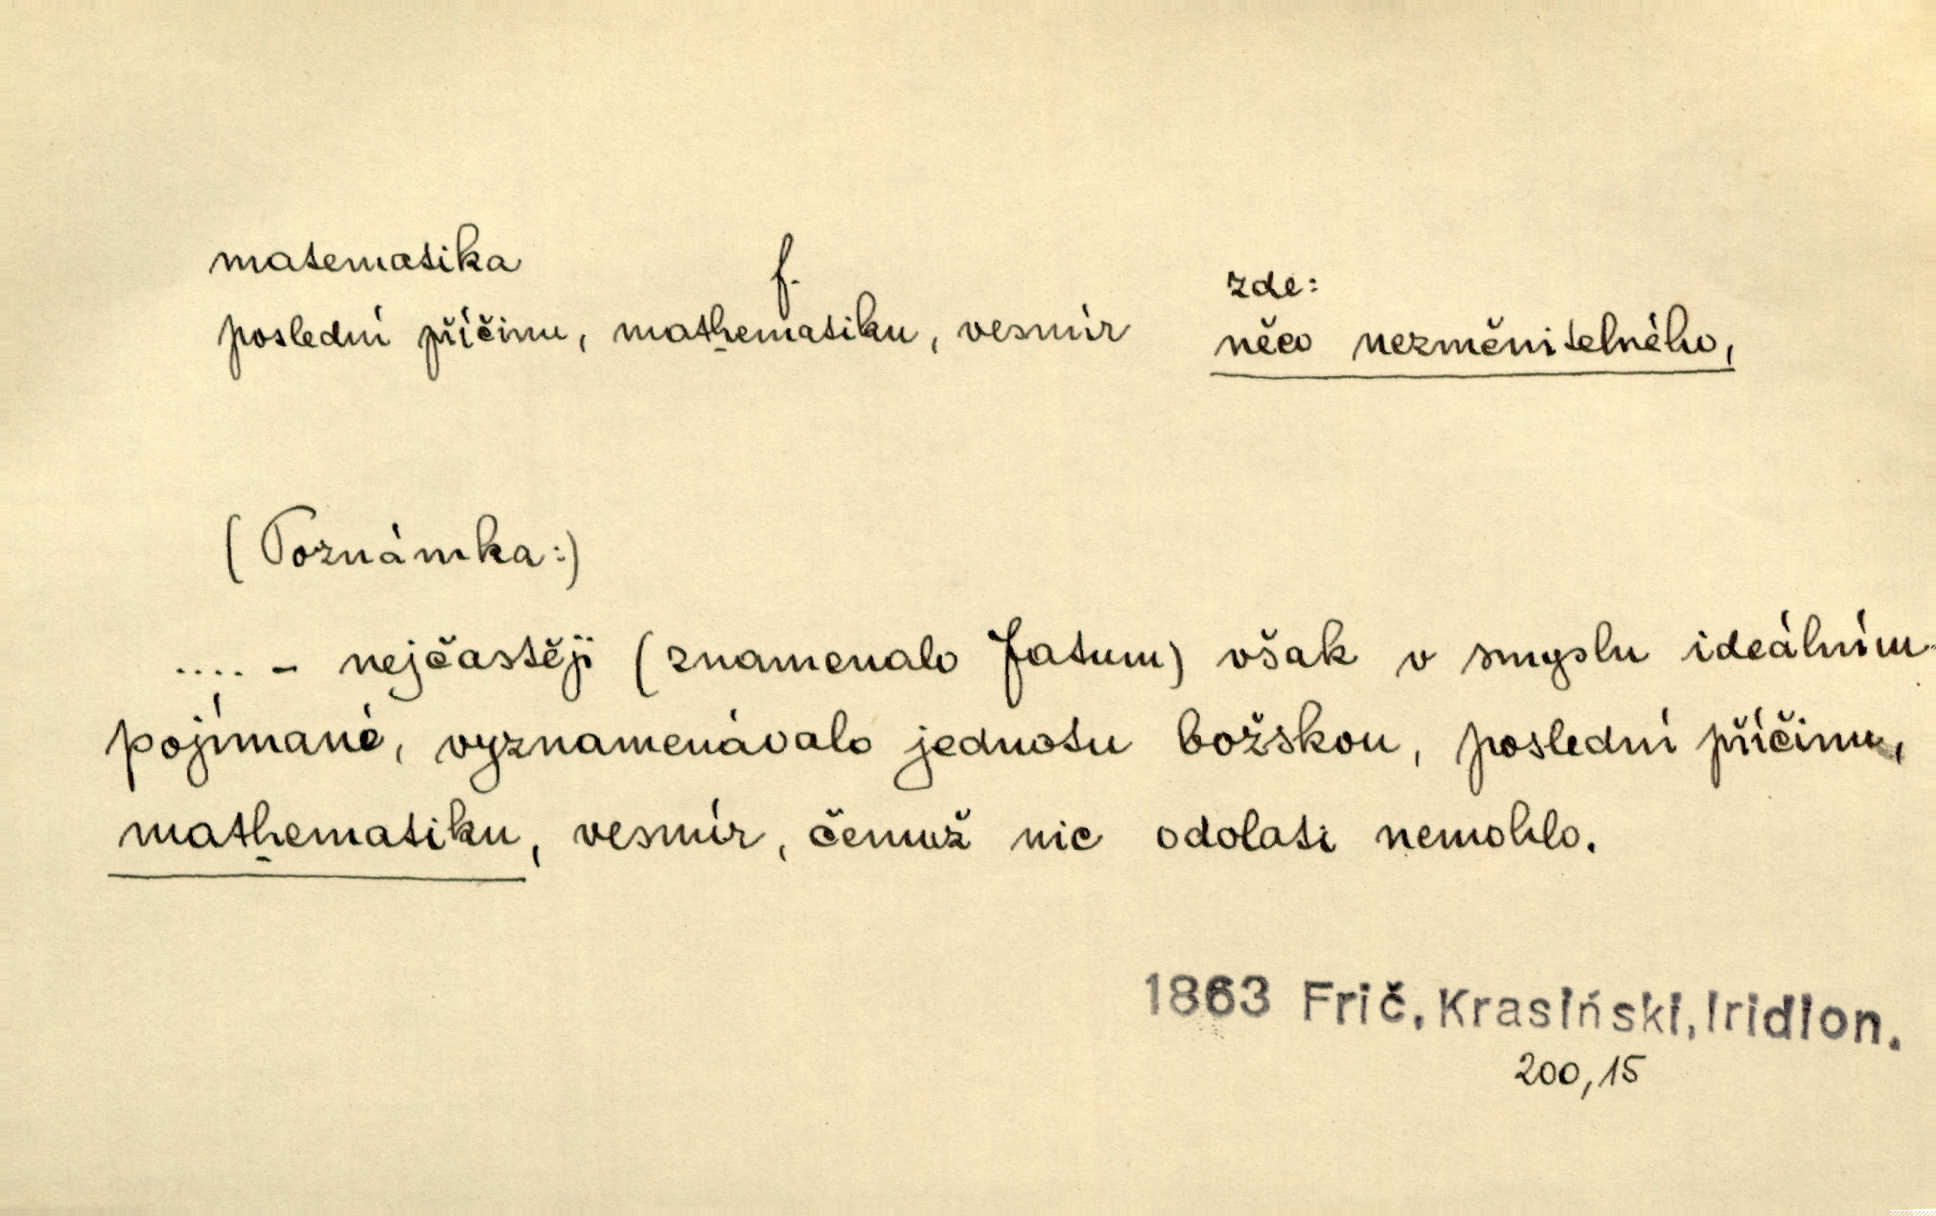 matematika f. zde:
poslední příčinu, mathematiku, vesmír něco nezměnitelného,
(Poznámka:)
.... – nejčastěji (znamenalo Fatum) však v smyslu ideálním
pojímané, vyznamenávalo jednotu božskou, poslední příčinu,
mathematiku, vesmír, čemuž nic odolati nemohlo.
1863 Frič, Krasiński, Iridion.
200,15